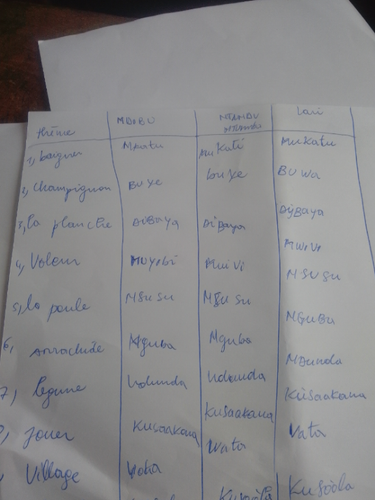 thème MBABU NTANDU Lari
NTANDU
1, bagner Mkatu Mukuli Mukatu
2, champignon Buye buke Buwa
3, la planche DiBaya DiBaya DiBaya
4, Voleur Muyibi Muivi Muivi
5, la poule Nsusu Nsusu Nsusu
6, arrachide Nguba Nguba NGUBU
7, legume Ndunda Ndunda Ndunda
8, jouer Kusaakana Kusaakana Kusaakana
, Village Vata Vata
Kusoola Kusoola